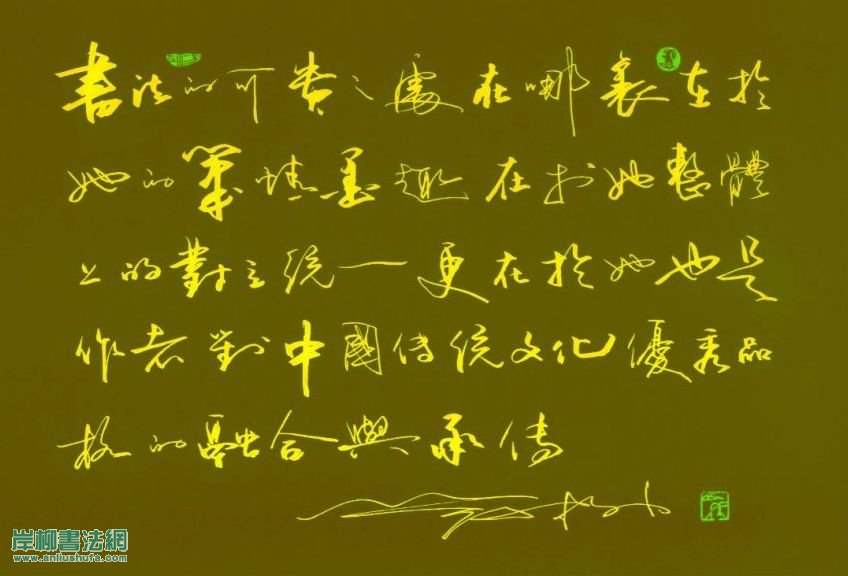 書法的可貴之處在哪裏在於
她的筆情墨趣在於她整體
上的對立統一更在於她也是
作者對中國傳統文化優秀品
格的融合與承傳
岸柳書法網
www.anliushufa.com